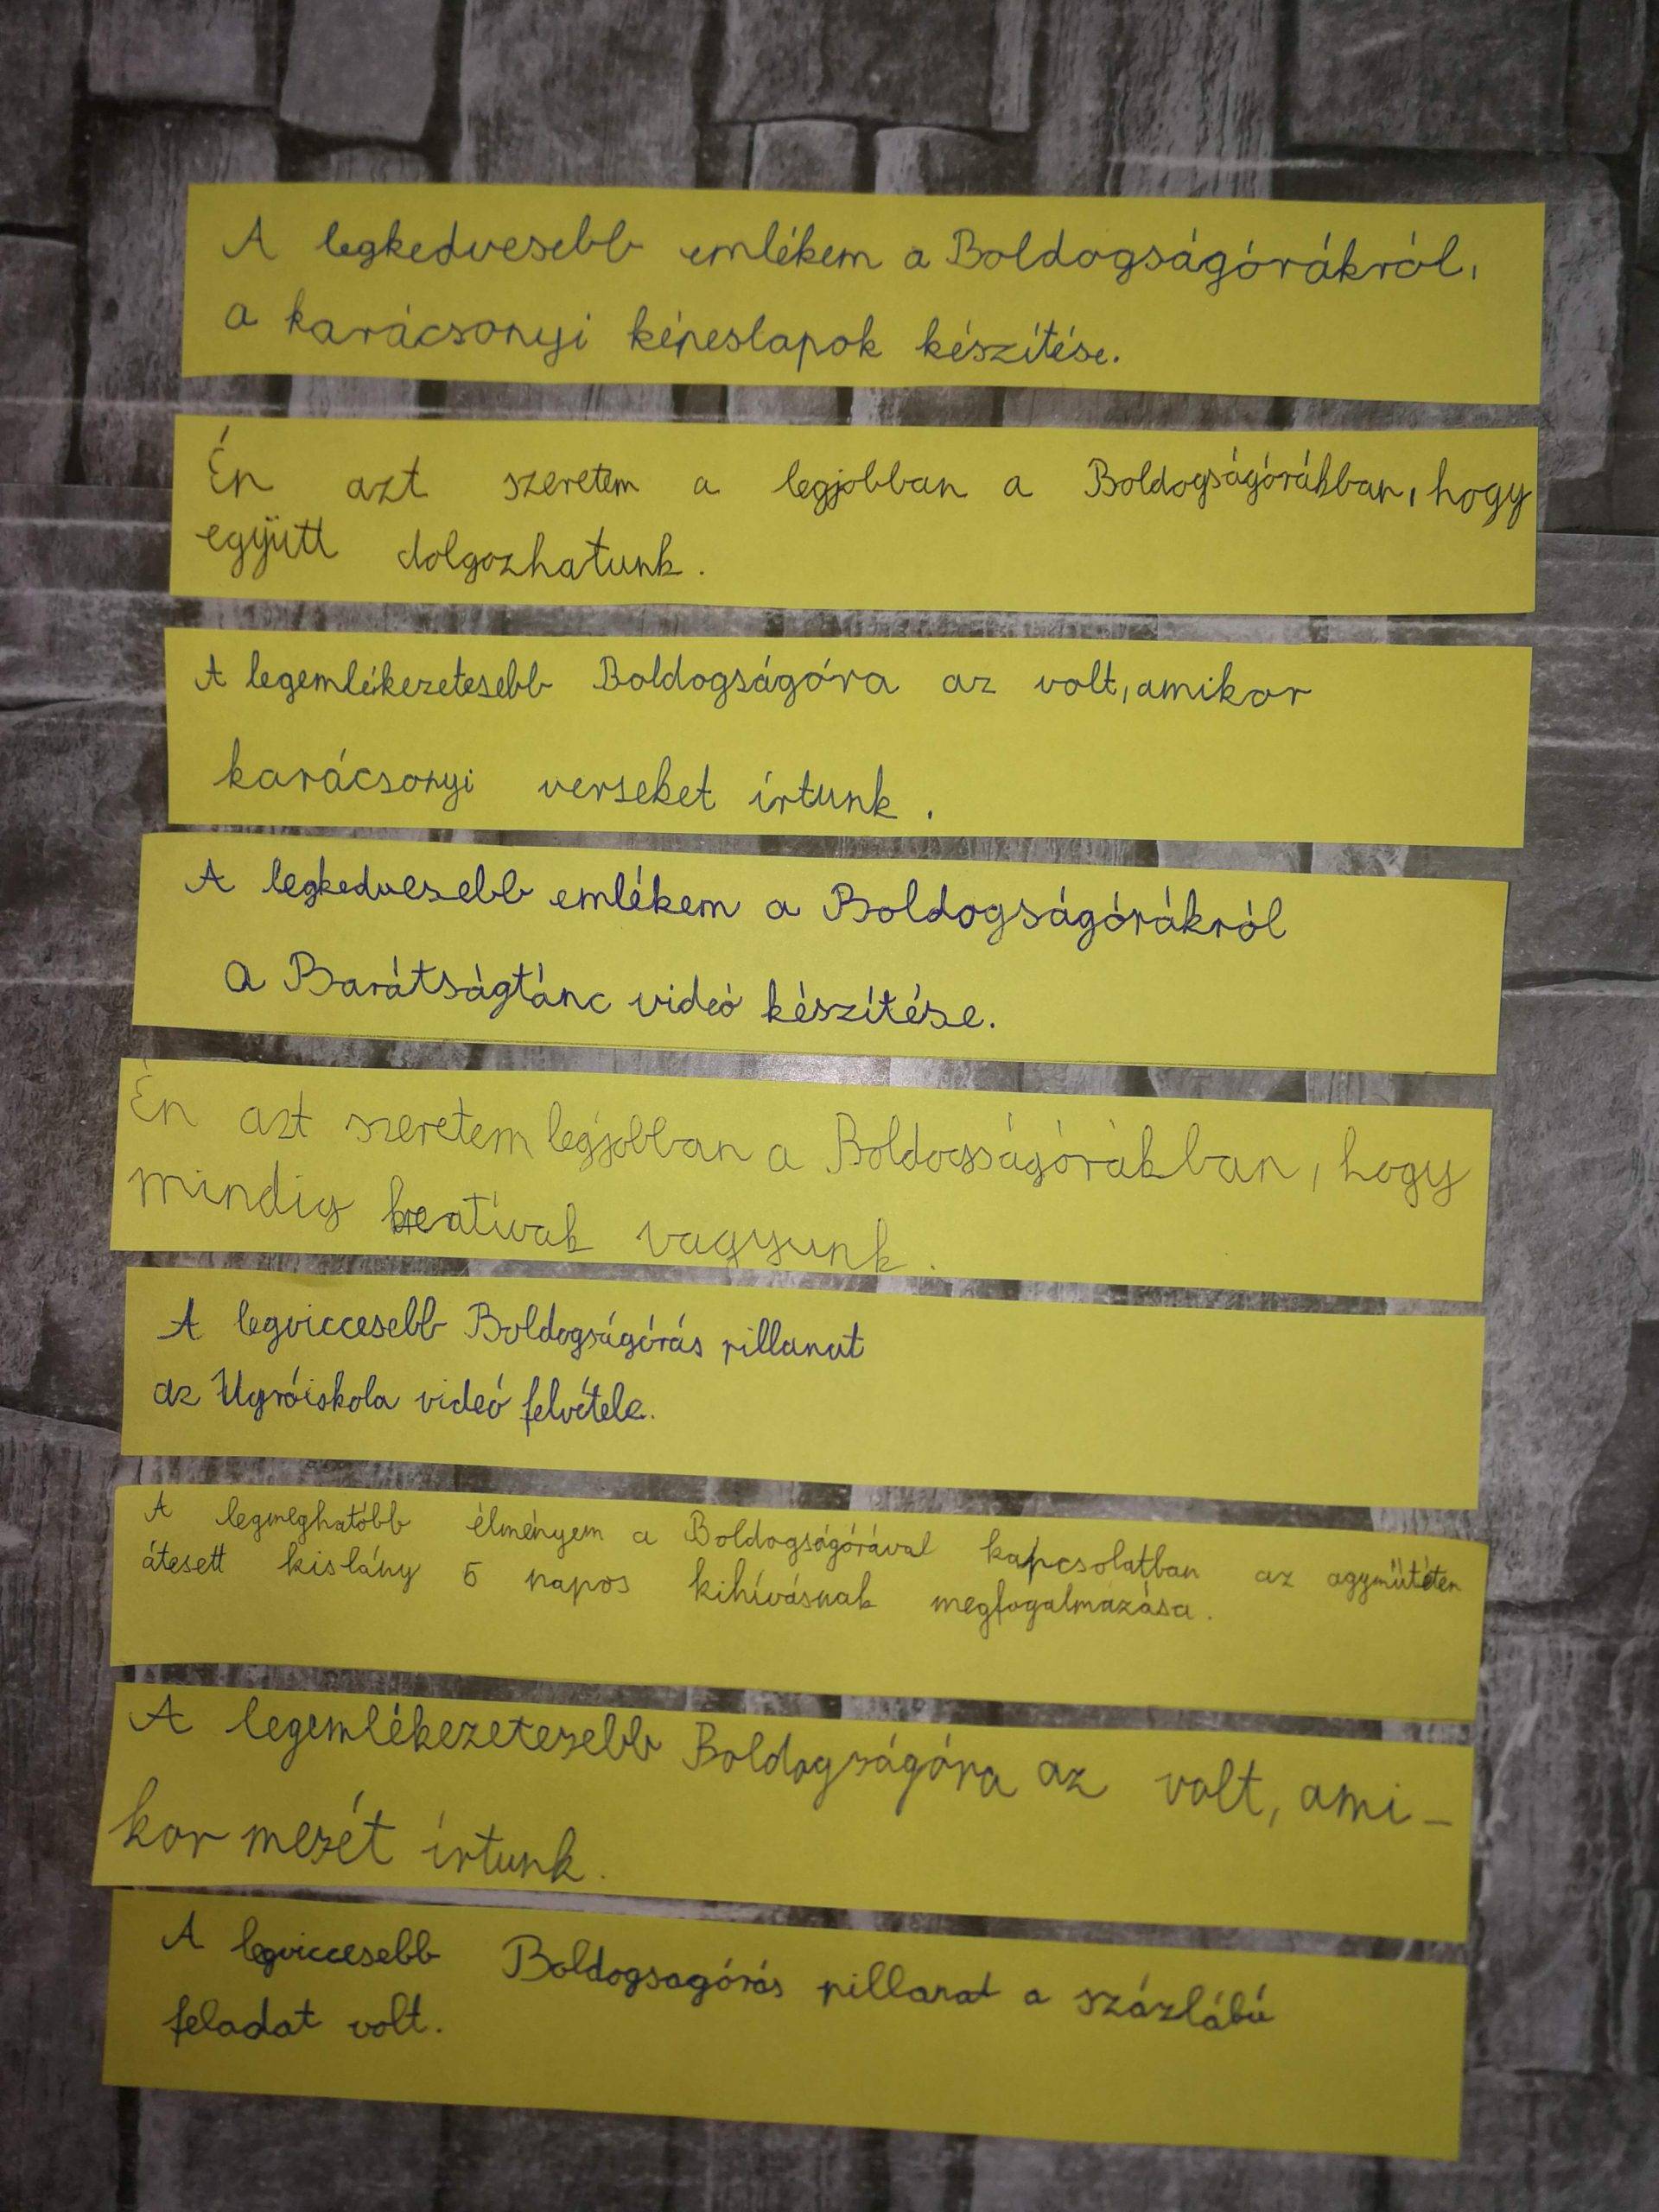 A legkedvesebb emlékem a Boldogságórákról,
a karácsonyi képeslapok készítése.
Én azt szeretem a legjobban a Boldogságórákban, hogy
együtt dolgozhatunk.
A legemlékezetesebb Boldogságóra az volt, amikor
karácsonyi verseket írtunk.
A legkedvesebb emlékem a Boldogságórákról
a Barátságtánc videó készítése.
Én azt szeretem legjobban a Boldogságórákban, hogy
mindig kreatívak vagyunk.
A legviccesebb Boldogságórás pillanat
az Ugróiskola videó felvétele.
A legmeghatóbb élményem a Boldogságórával kapcsolatban az agyműtéten
átesett kislány 5 napos kihívásnak megfogalmazása.
A legemlékezetesebb Boldogságóra az volt, ami-
kor mesét írtunk.
A legviccesebb Boldogsagórás pillanat a százlábú
feladat volt.